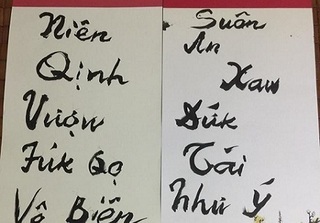 Niên
Qịnh
Vượn
Fúk Gọ
Vô Biên
Suôn
An
Xaw
Súk
Tái
Như Ý